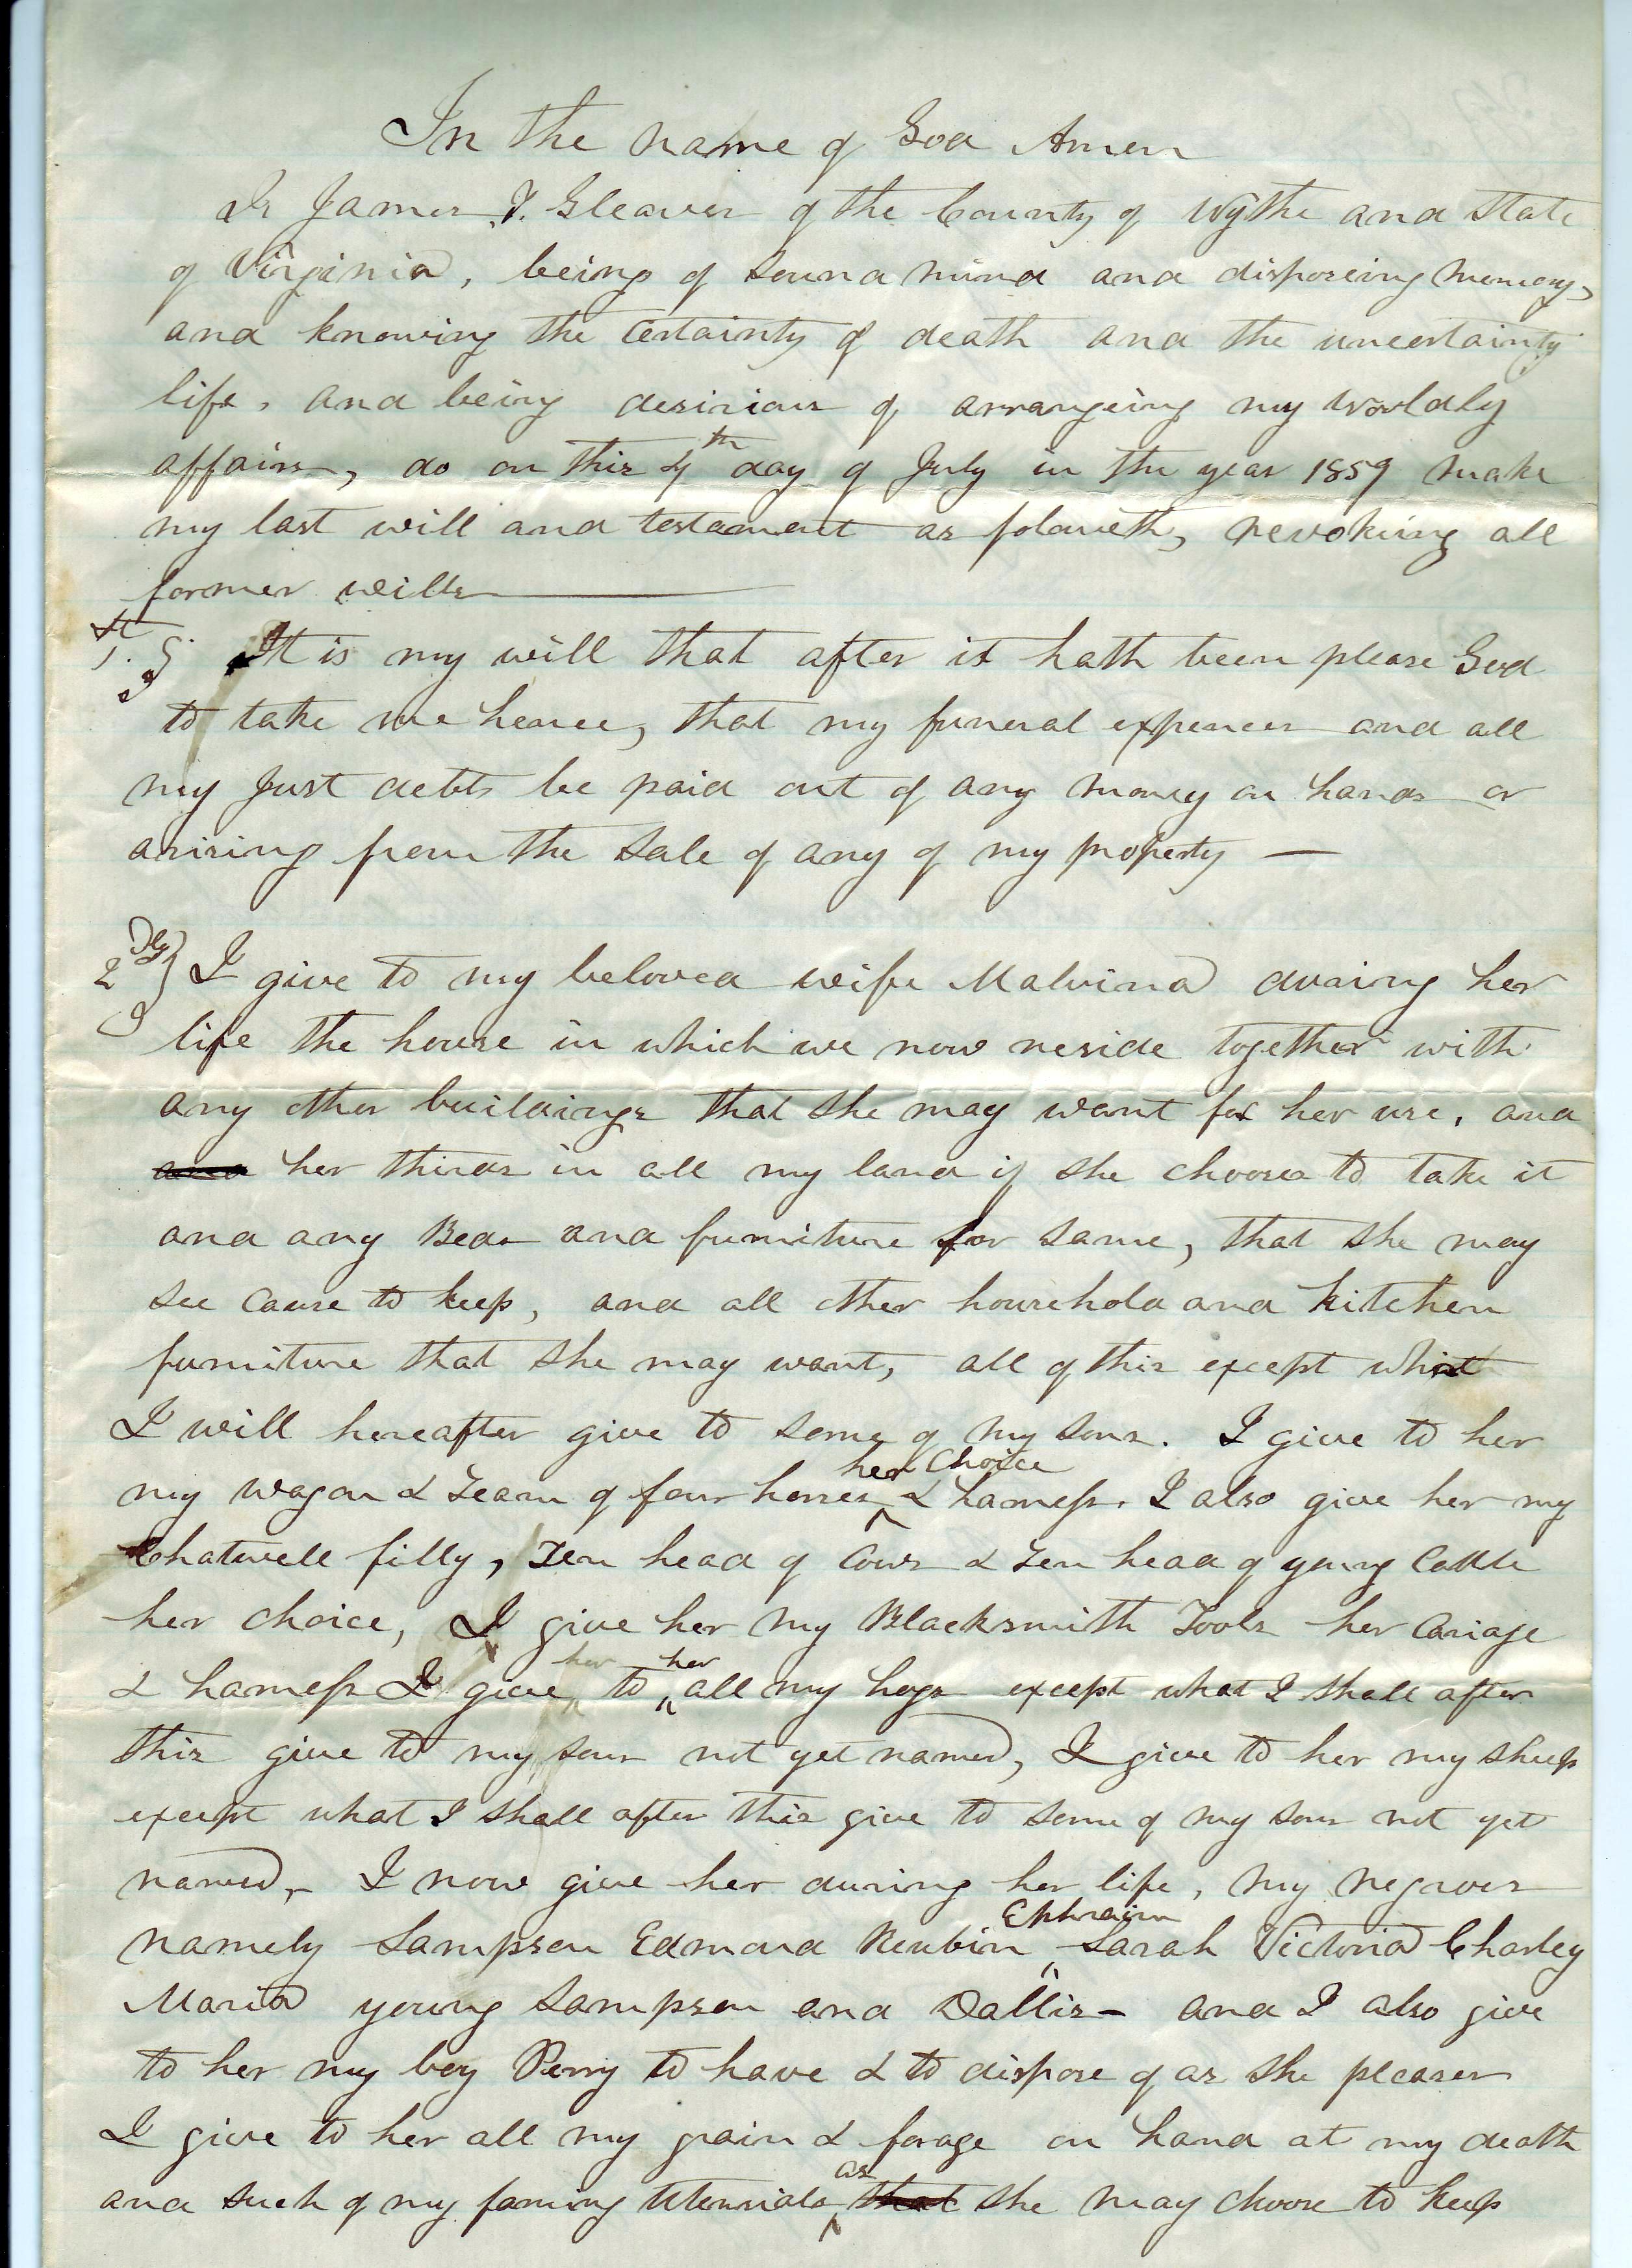 In the name of God Amen
I, James T. Gleaves of the County of Wythe and State
of Virginia, being of sound mind and disposeing memory,
and knowing the certainty of death and the uncertainty
life, and being desirious of arrangeing my worldly
affairs, do on this 4th day of July in the year 1859 make
my last will and testament as foloweth, revokeing all
former wills
1st It is my will that after it hath been please God
to take me hence, that my funeral expences and all
my Just debts be paid out of any money on hands or
ariseing from the sale of any of my property —
2dly I give to my beloved wife Malvina during her
life the house in which we now reside together with
any other buildings that she may want for her use, and
and her thirds in all my land if she chooses to take it
and any Beds and furniture for same, that she may
see cause to keep, and all other household and kitchen
furniture that she may want, all of this except what
I will hereafter give to some of my sons. I give to her
my wagon & Team of four horses her Choice & harness. I also give her my
Chatwell filly, Ten head of Cows & Ten head of young Cattle
her choice, I give her my Blacksmith Tools her Cariage
& harness I give her to her all my hogs except what I shall after
this give to my sons not yet named, I give to her my sheep
except what I shall after this give to some of my sons not yet
named, I now give her during her life, my negroes
namely Sampson Edmond Reubin Ephraim Sarah Victoria Charley
Maria young Sampson and Dallis - and I also give
to her my boy Perry to have & to dispose of as she pleases
I give to her all my grain & forage on hand at my death
and such of my faming utensials as that she may choose to keep